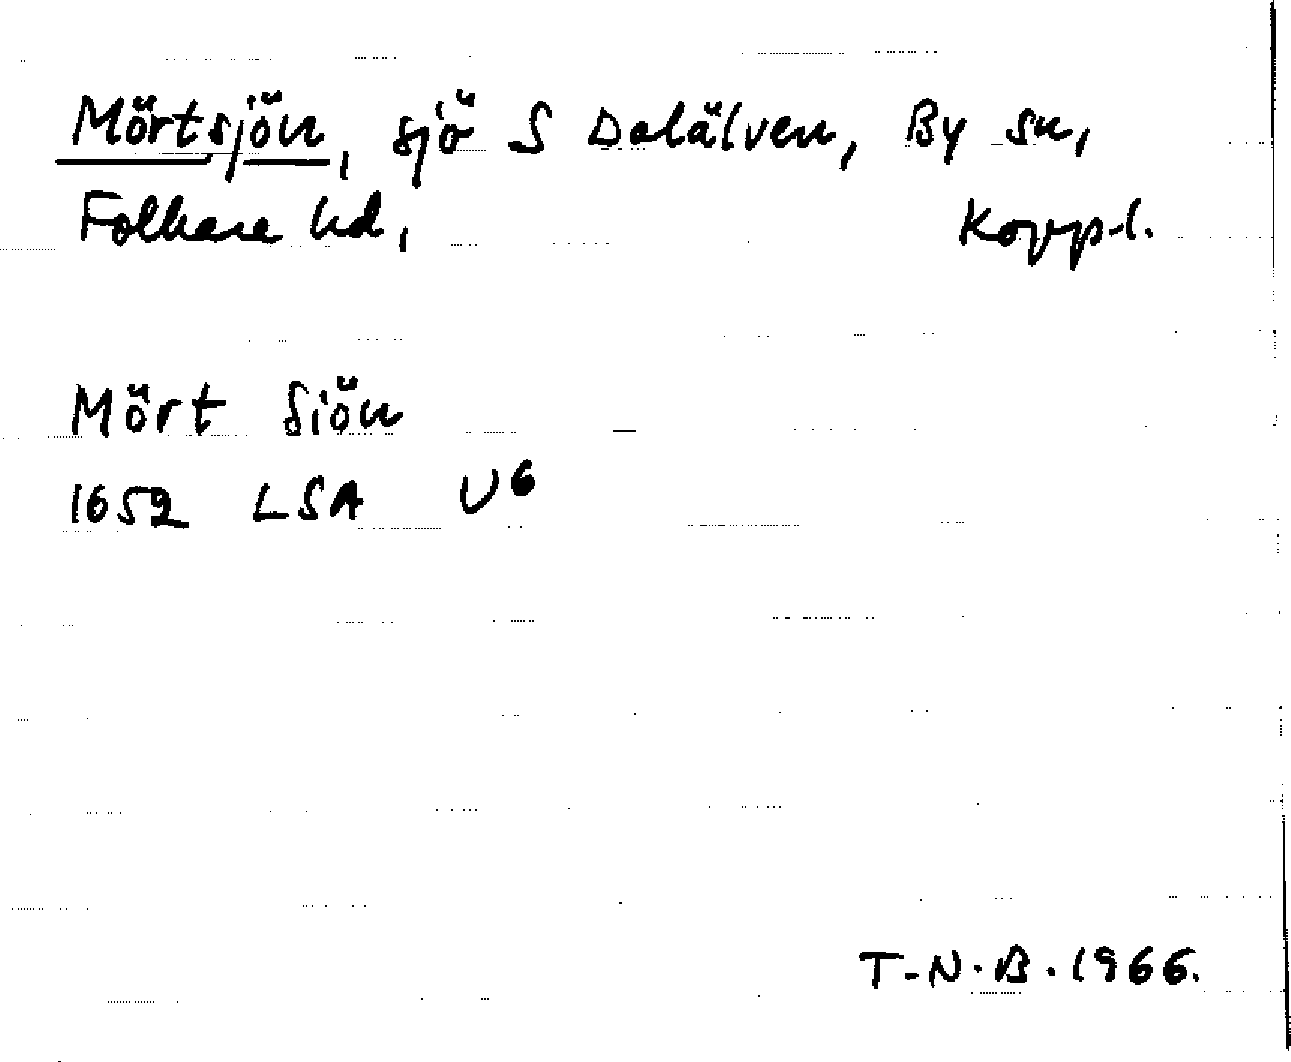 Mörtsjön, sjö S Dalälven, By sn,
Folkare hd, Kopp.l.
Mört Siön
1652 LSA U6
T-N.B.1966.